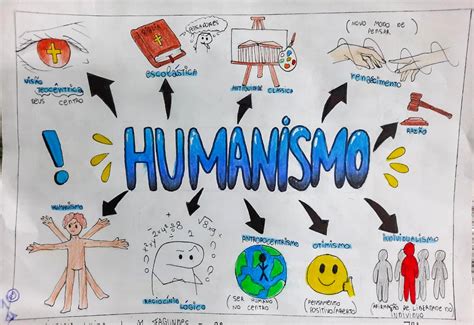 (NOVO MODO DE
PENSAR
VISÃO
TEOCÊNTRICA
DEUS CENTRO
ESCOLÁSTICA
PENSADORES
CLÁSSICO
RENASCIMENTO
RAZÃO
HUMANISMO
!
HUMANISMO
RACIOCÍNIO
LÓGICO
ANTROPOCENTRISMO
(SER HUMANO
NO CENTRO)
OTIMISMO
(PENSAMENTO
POSITIVO/ABERTO)
INDIVIDUALISMO
(AFIRMAÇÃO DE LIBERDADE DO
INDIVÍDUO